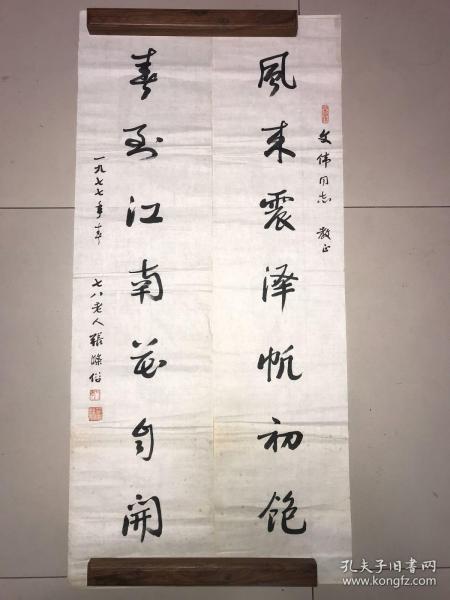 文伟同志 教正
風来震泽帆初饱
春到江南花自開
一九七七年春 七八老人張滌俗
孔夫子旧书网
www.kongfz.com